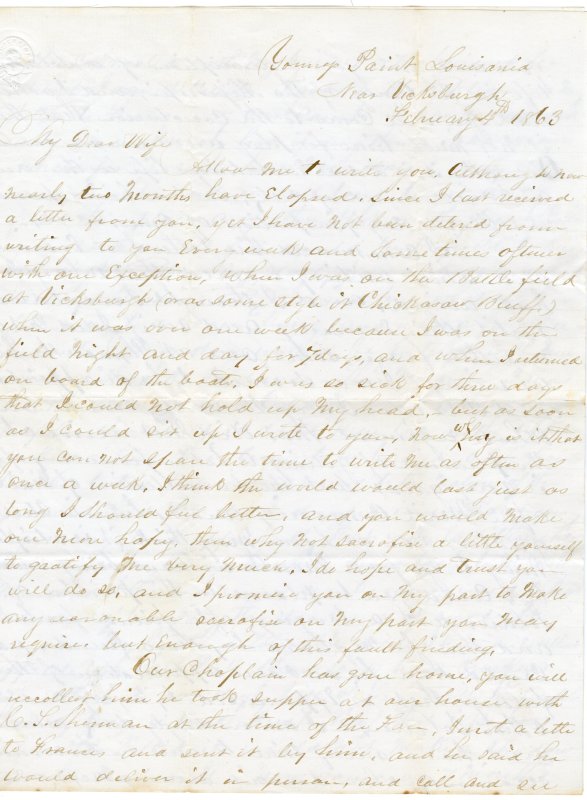 Youngs Point Louisania
Near Vicksburgh
February 4th 1863
My Dear Wife
Allow me to write you. Although now
nearly two months have Elapsed. Since I last received
a letter from you, yet I have not been detered from
writing to you Every week and Sometimes oftner
with one Exception, when I was on the Battle field
at Vicksburgh (or as some style it Chickasaw Bluff.)
when it was over one week because I was on the
field night and day for 7 days, and when I returned
on board of the boats, I was so sick for three days
that I could not hold up my head, but as soon
as I could sit up I wrote to you, now why is it that
you can not spare the time to write me as often as
once a week. I think the world would last just as
long I should feel better, and you would make
one more hapy, then why not sacrofise a little yourself
to gratify me very much. I do hope and trust you
will do so, and I promise you on my part to make
any reasonable sacrofise on my part you may
require, but Enough of this fault finding.
Our Chaplain has gone home, you will
recollect him he took supper at our house with
C. T. Sherman at the time of the Fair, I write a letter
to Frances and sent it by him, and he said he
would deliver it in person, and call and see